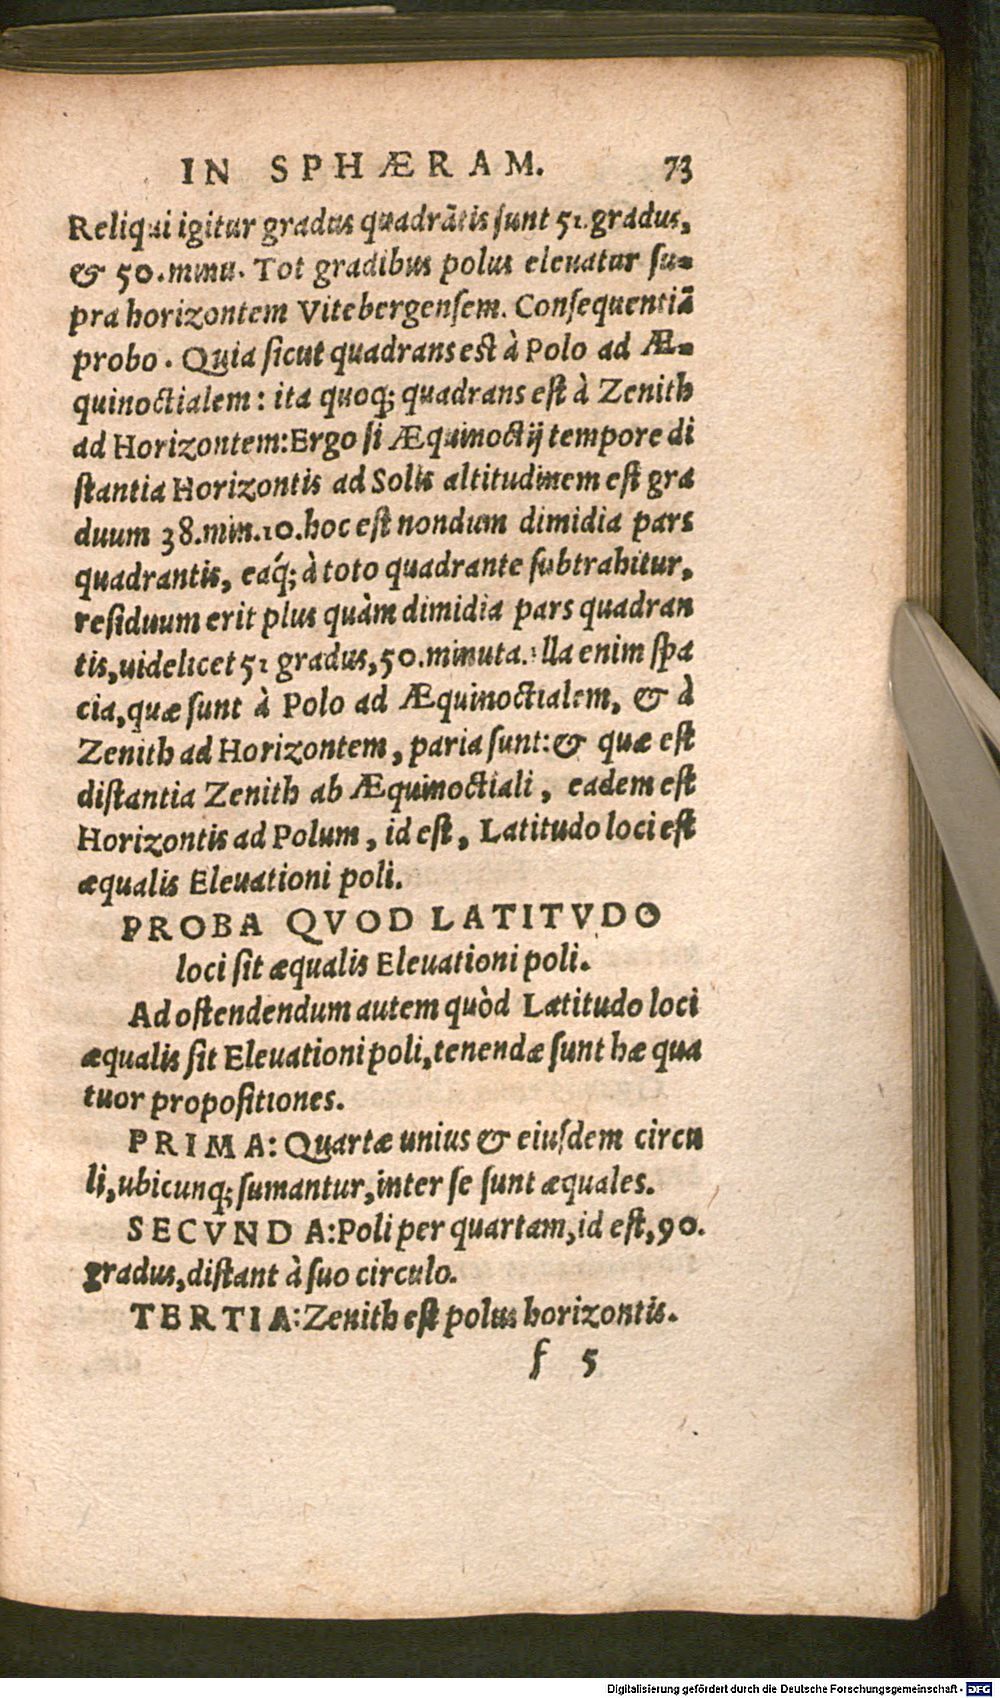 IN SPHÆRAM. 73
Reliqui igitur gradus quadrātis sunt 51. gradus,
& 50. minu. Tot gradibus polus eleuatur su-
pra horizontem Vitebergensem. Consequentiā
probo. Quia sicut quadrans est à Polo ad Æ-
quinoctialem: ita quoq; quadrans est à Zenith
ad Horizontem: Ergo si Æquinoctij tempore di
stantia Horizontis ad Solis altitudinem est gra
duum 38. min. 10. hoc est nondum dimidia pars
quadrantis, eaq́; à toto quadrante subtrahitur,
residuum erit plus quàm dimidia pars quadran
tis, uidelicet 51 gradus, 50. minuta. Illa enim spa
cia, quæ sunt à Polo ad Æquinoctialem, & à
Zenith ad Horizontem, paria sunt: & quæ est
distantia Zenith ab Æquinoctiali, eadem est
Horizontis ad Polum, id est, Latitudo loci est
æqualis Eleuationi poli.
PROBA QVOD LATITVDO
loci sit æqualis Eleuationi poli.
Ad ostendendum autem quòd Latitudo loci
æqualis sit Eleuationi poli, tenendæ sunt hæ qua
tuor propositiones.
PRIMA: Quartæ unius & eiusdem circu
li, ubicunq; sumantur, inter se sunt æquales.
SECVNDA: Poli per quartam, id est, 90.
gradus, distant à suo circulo.
TERTIA: Zenith est polus horizontis.
f 5
Digitalisierung gefördert durch die Deutsche Forschungsgemeinschaft - DFG